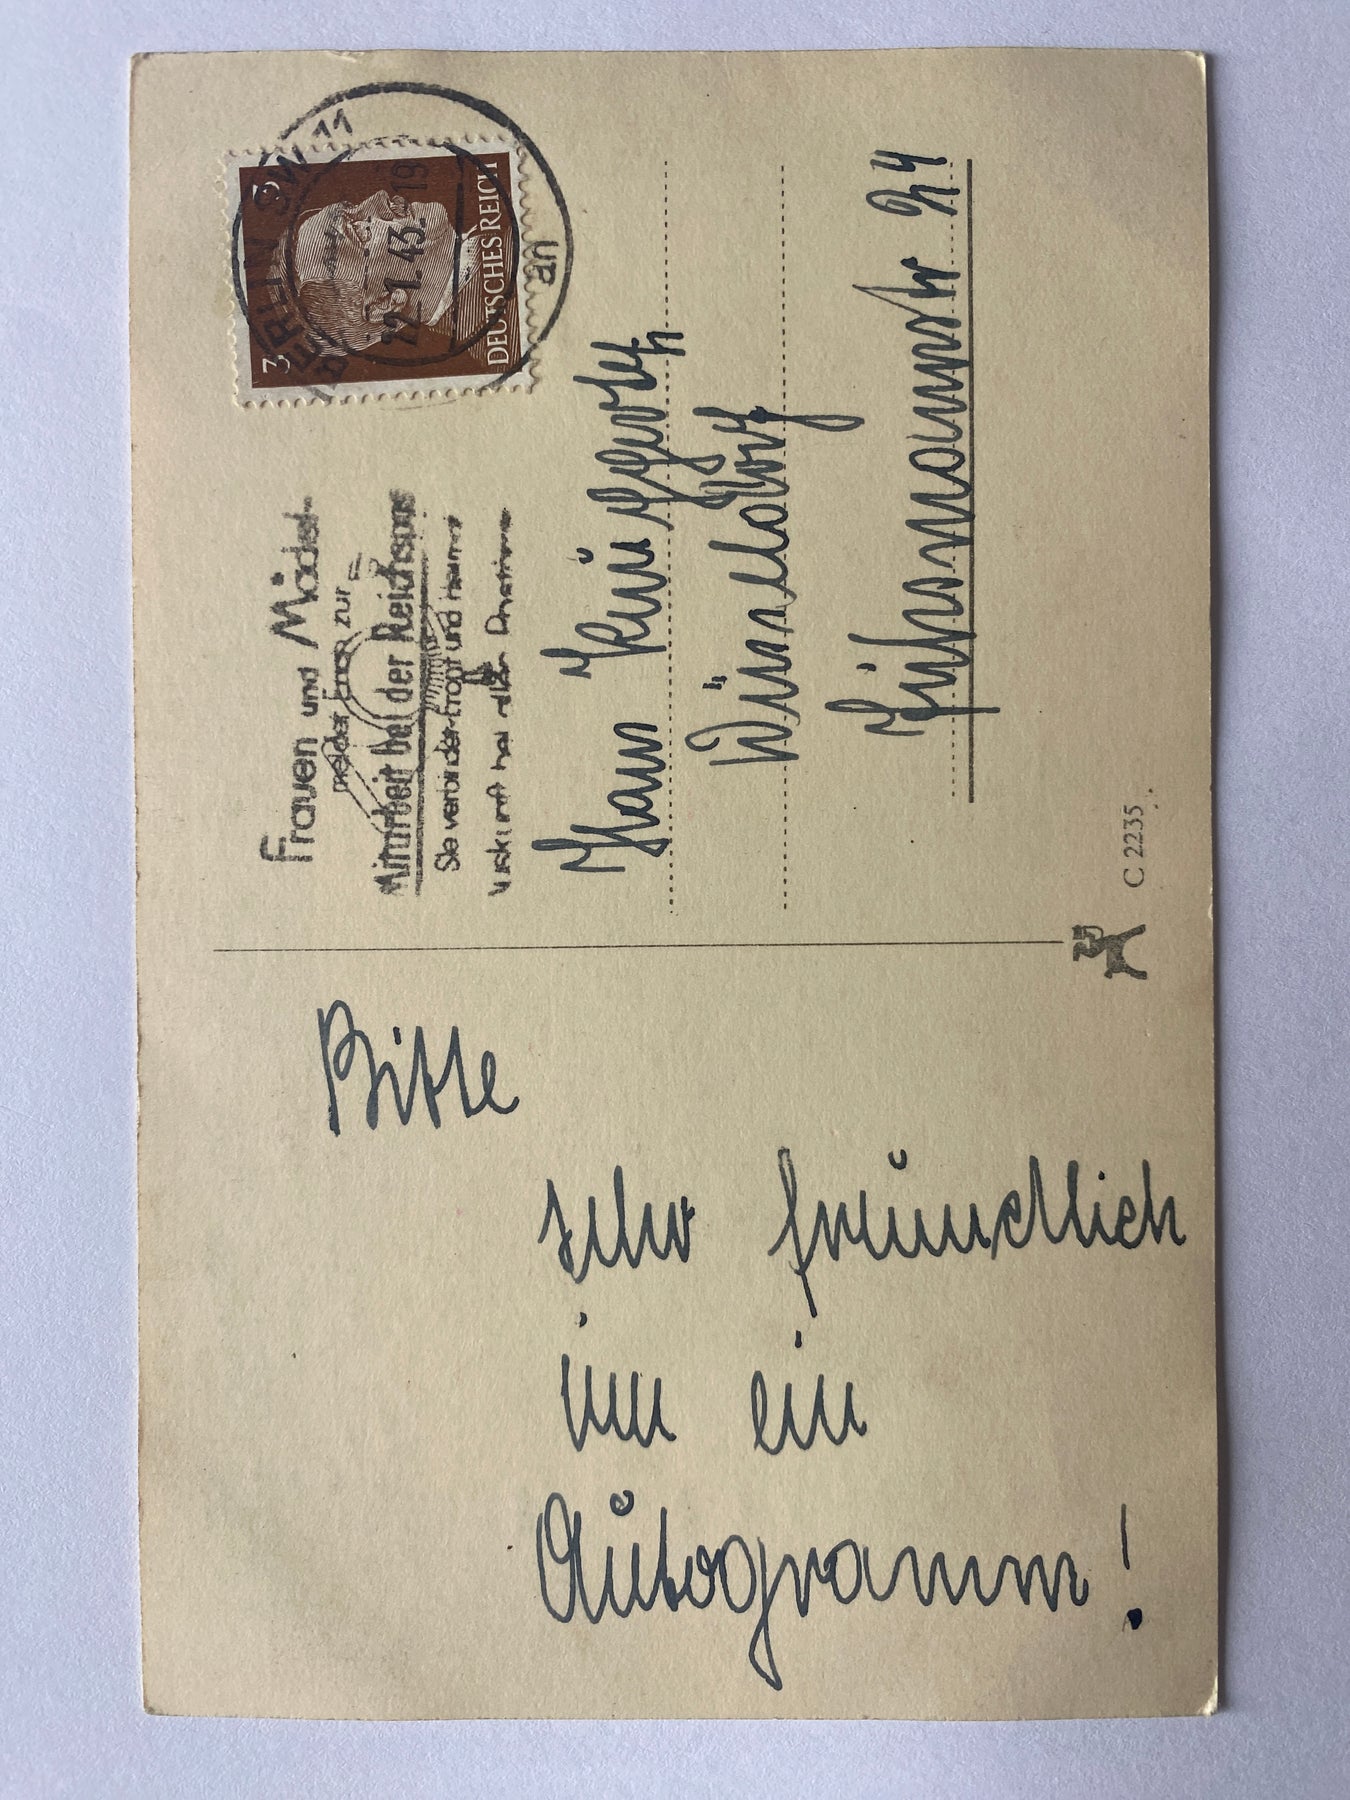 Bitte
sehr freundlich
um ein
Autogramm!
Frauen und Mädel
meldet Euch zur
Mitarbeit bei der Reichspost
Sie verbindet Front und Heimat
Auskunft bei allen
BERLIN SW 11
22.1.43.-19
an
3 3
DEUTSCHES REICH
Hans
Düsseldorf
24
C 2235